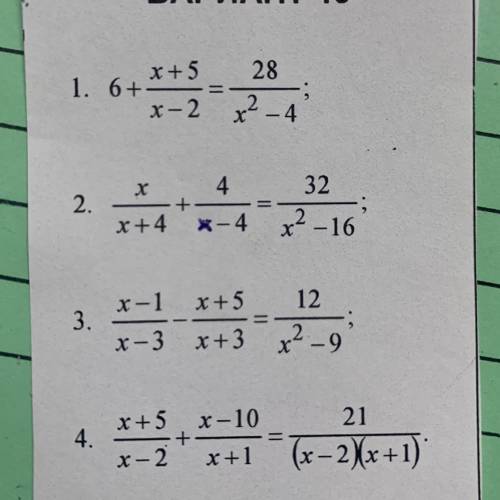 1. 6 + (x+5)/(x−2) = 28/(x² − 4);
2. x/(x+4) + 4/(x−4) = 32/(x² − 16);
3. (x−1)/(x−3) − (x+5)/(x+3) = 12/(x² − 9);
4. (x+5)/(x−2) + (x−10)/(x+1) = 21/((x−2)(x+1)).